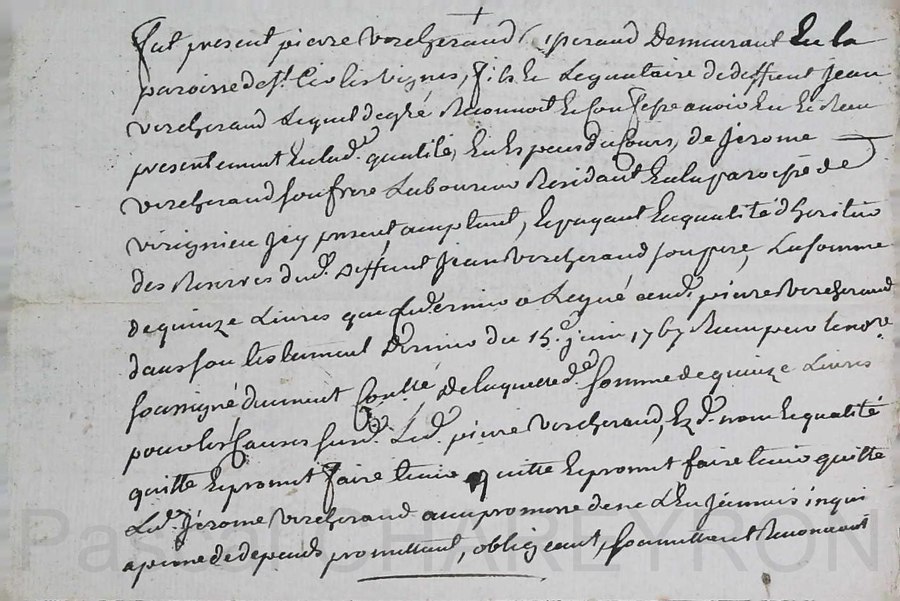 fut present pierre Vercherand operaud demeurant en la
paroisse de St. Cir les Vignes, fils et legataire de deffunt Jean
Vercherand lequel de gré Reconnoit et Confesse avoir Eu et Receu
presentement en lad. qualité, en Especes du Cours, de Jérome
Vercherand son frere Laboureur Residant en la paroisse de
Virignieu Icy present acceptant, Et payant En qualité d'heritier
des Reserves dud. deffunt Jean Vercherand son pere, La somme
de quinze Livres que Led. dernier a Legué aud. pierre Vercherand
dans son testament Dernier du 15e. juin 1767 Receu par le nore.
soussigné duement Conllé, De laquelle de. somme de quinze Livres
pour les Causes susd. Led. pierre Vercherand, Ezd. nom et qualité
quitte Et promet faire tenir quitte Et promet faire tenir quitte
Led. Jérome Vercherand avec promesse de ne L'En Jamais inqui
a peine de depends promettant, obligeant, soumettant Renoncant
Pascal CHAREYRON